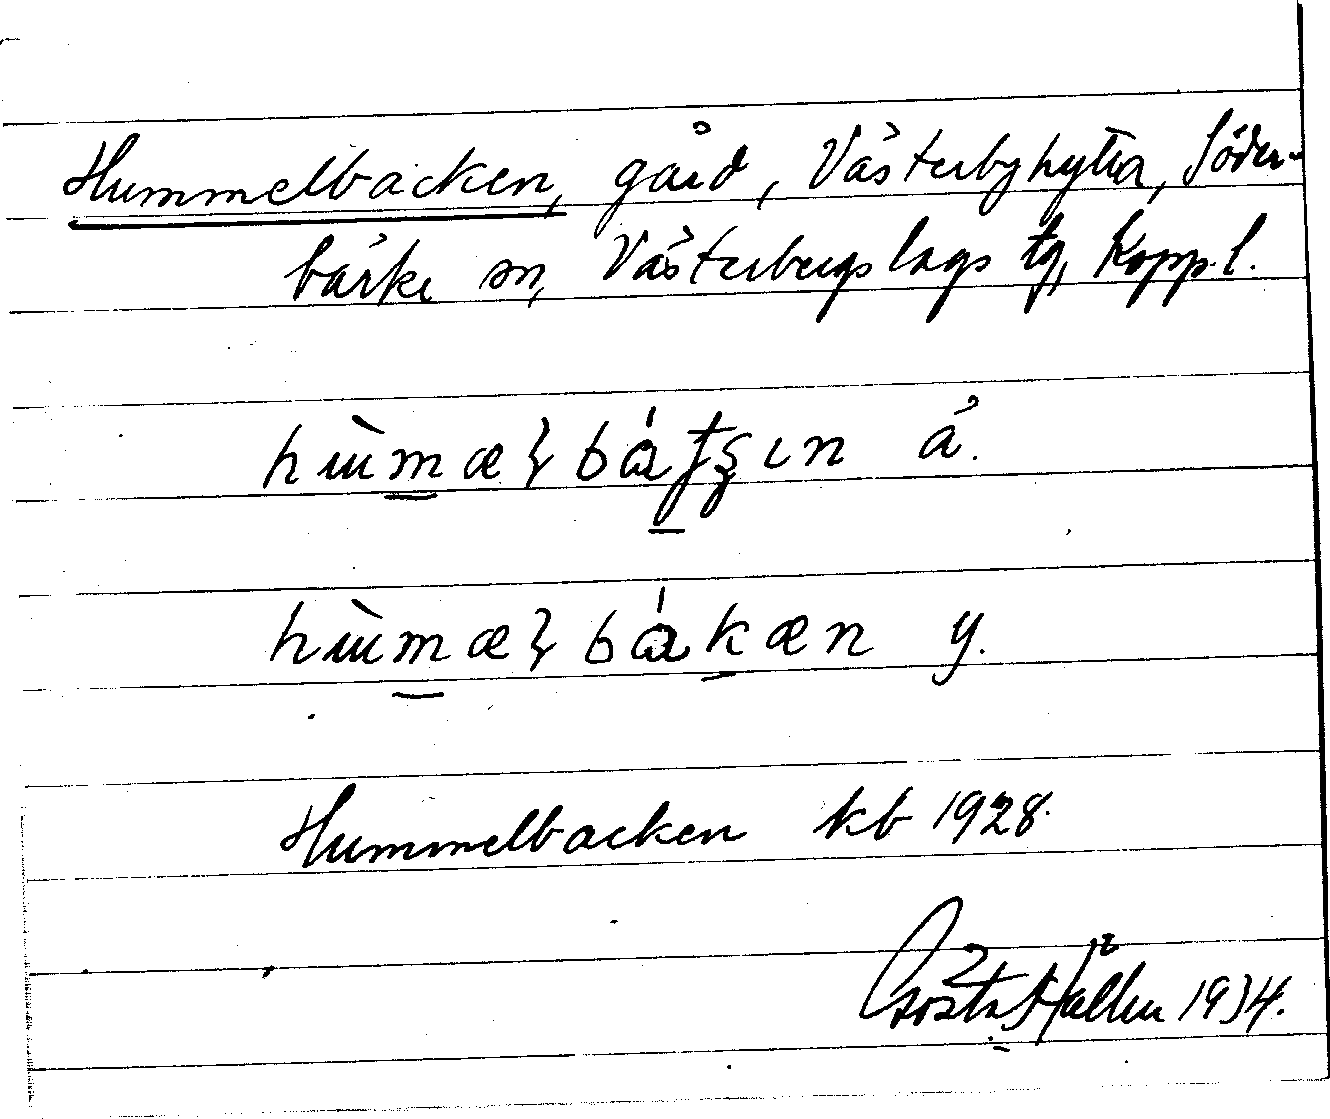 Hummelbacken, gård, Västerbyhyttan, Söder-
bärke sn, Västerbergslags tg, Kopp. l.
å.
y.
Hummelbacken kb 1928.
Gösta Hållen 1934.